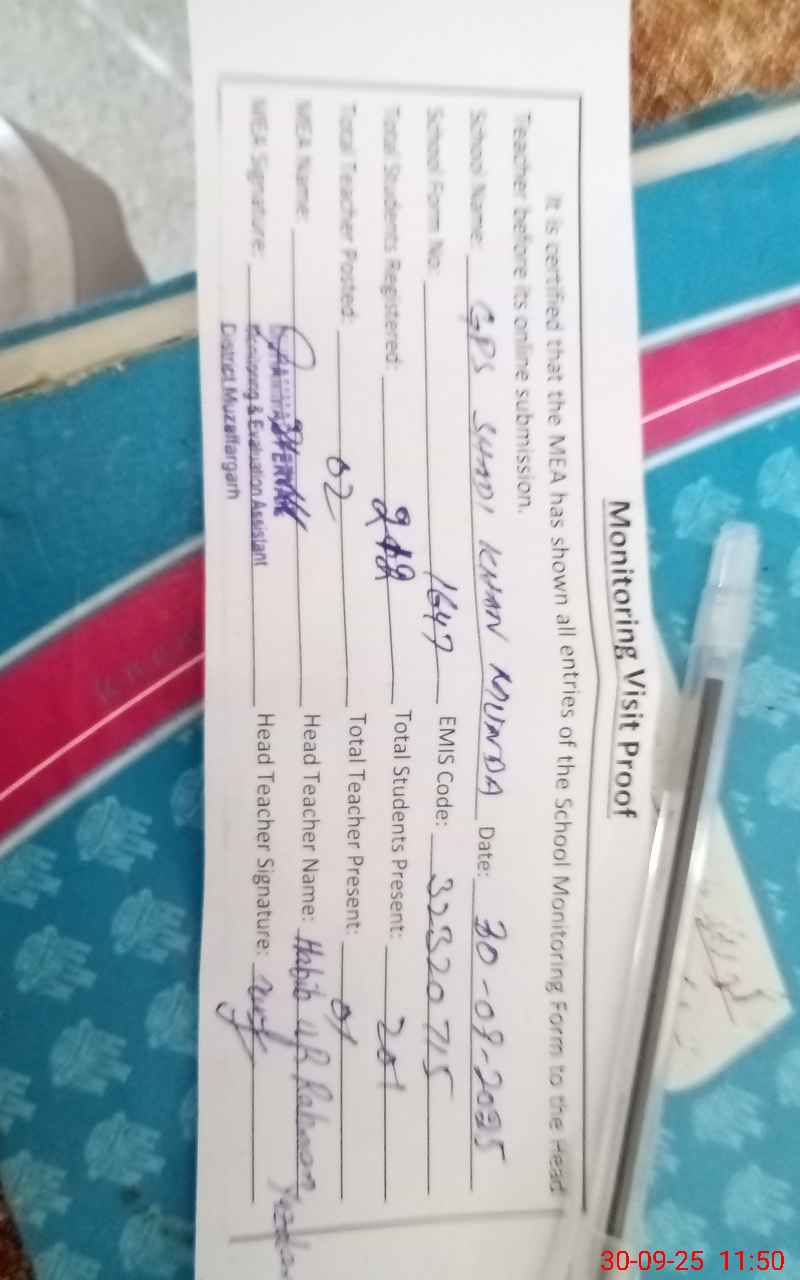 Monitoring Visit Proof
It is certified that the MEA has shown all entries of the School Monitoring Form to the Head
Teacher before its online submission.
School Name: GPS SHADI KHAN MUNDA Date: 30-09-2025
School Form No: 1647 EMIS Code: 32320715
Total Students Registered: 212 Total Students Present: 201
Total Teacher Posted: 02 Total Teacher Present: 01
MEA Name: Head Teacher Name: Habib ur Rahman
MEA Signature: Head Teacher Signature:
Monitoring & Evaluation Assistant
District Muzaffargarh
30-09-25 11:50